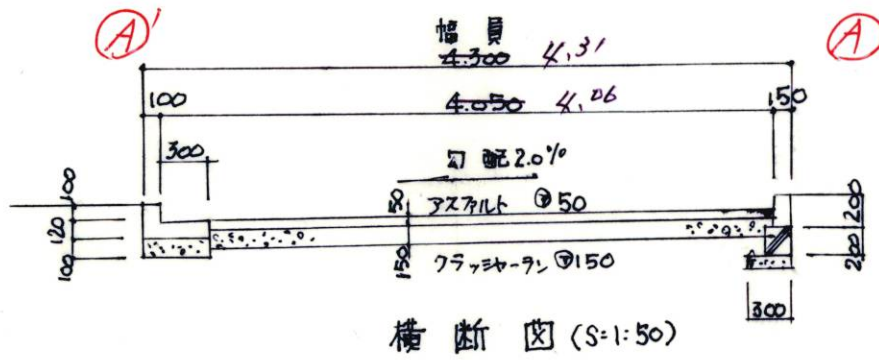 A'
A
幅員
4.300 4.31
100
4.050 4.06
150
300
勾配2.0%
100
120
100
50
アスファルト ㋐50
150
クラッシャーラン ㋐150
200
200
300
横断図 (S=1:50)